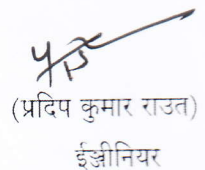 (प्रदिप कुमार राउत)
ईञ्जीनियर